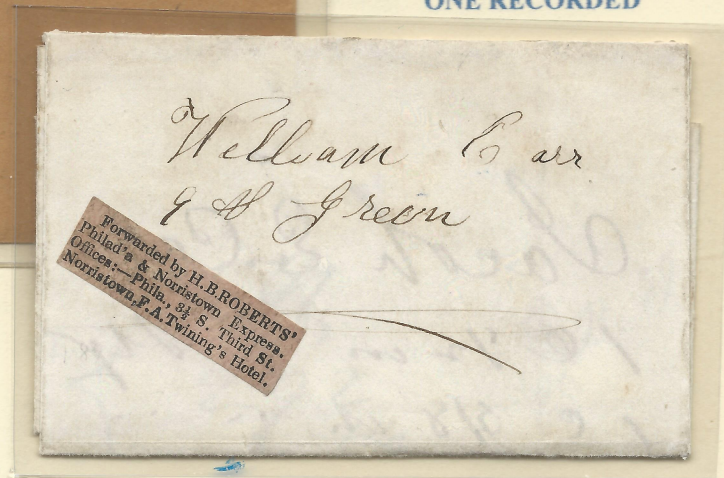 ONE RECORDED
William Carr
9th Green
Forwarded by H. B. ROBERTS'
Philad'a & Norristown Express.
Offices:—Phila., 3½ S. Third St.
Norristown, F. A. Twining's Hotel.